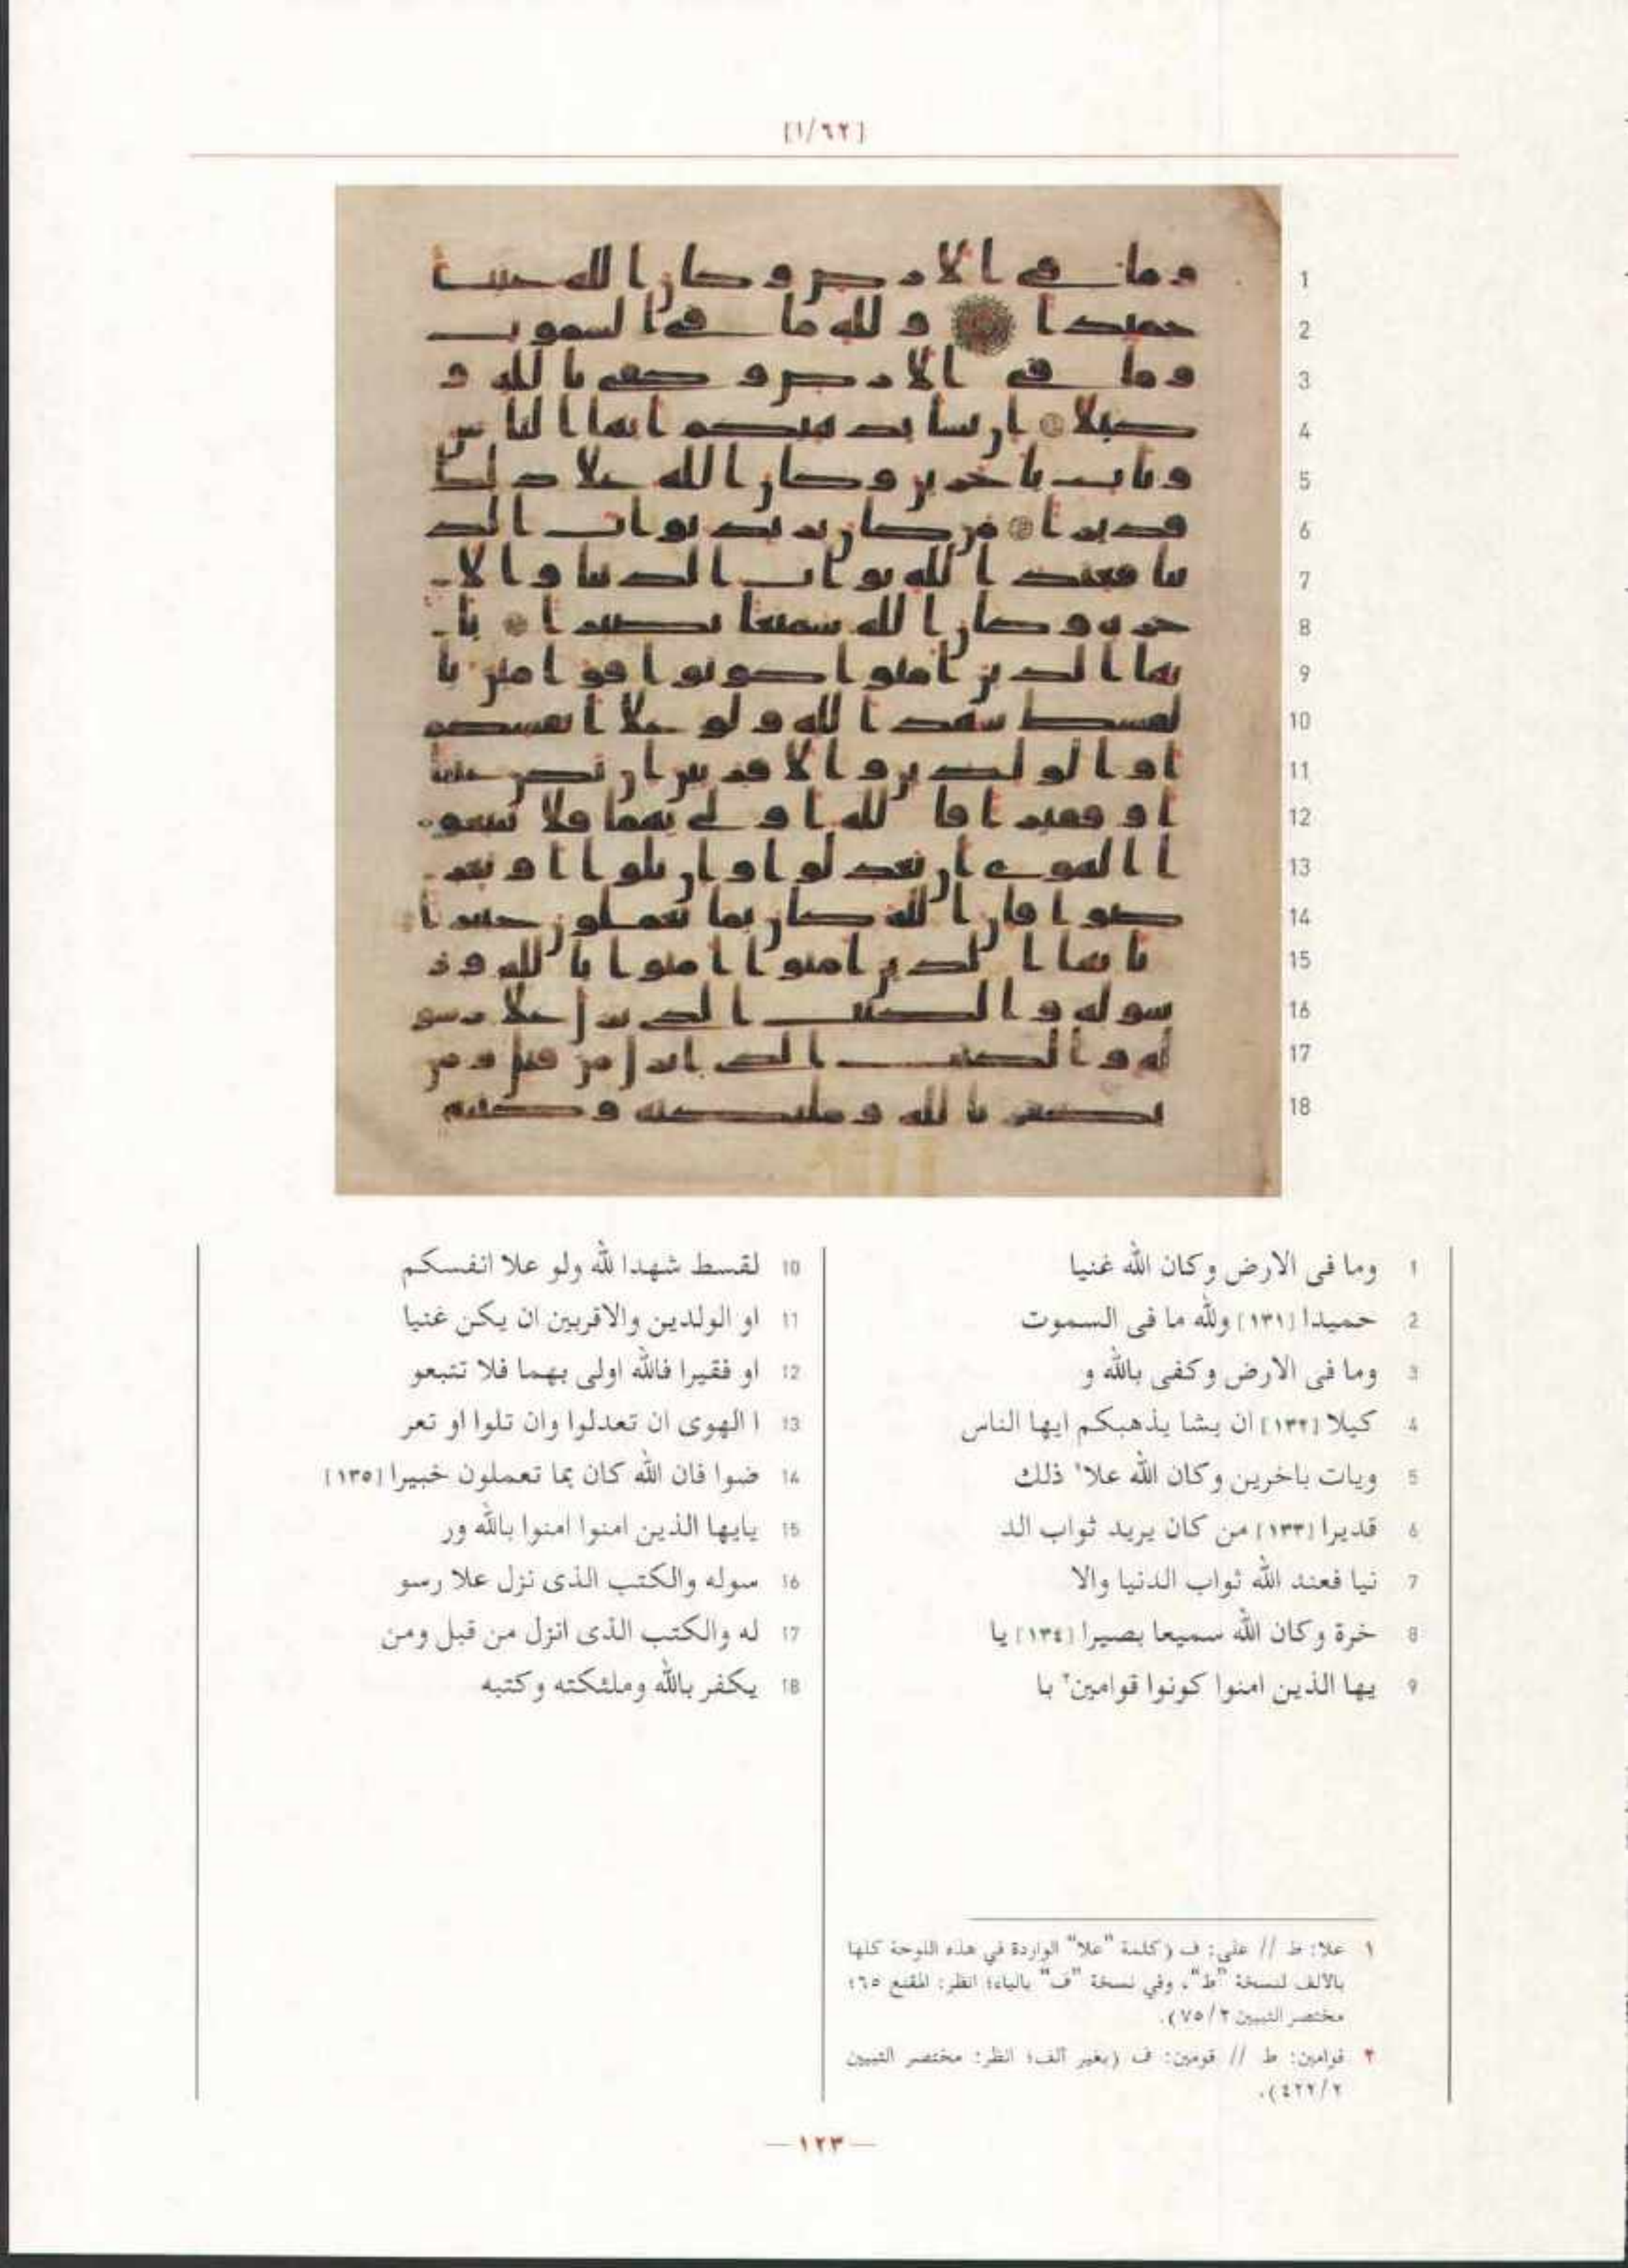 [١/٦٢]
1 وما فى الارض وكان الله غنيا
2 حميدا [١٣١] ولله ما فى السموت
3 وما فى الارض وكفى بالله و
4 كيلا [١٣٢] ان يشا يذهبكم ايها الناس
5 ويات باخرين وكان الله علا١ ذلك
6 قديرا [١٣٣] من كان يريد ثواب الد
7 نيا فعند الله ثواب الدنيا والا
8 خرة وكان الله سميعا بصيرا [١٣٤] يا
9 يها الذين امنوا كونوا قوامين٢ با
10 لقسط شهدا لله ولو علا انفسكم
11 او الولدين والاقربين ان يكن غنيا
12 او فقيرا فالله اولى بهما فلا تتبعو
13 ا الهوى ان تعدلوا وان تلوا او تعر
14 ضوا فان الله كان بما تعملون خبيرا [١٣٥]
15 يايها الذين امنوا امنوا بالله ور
16 سوله والكتب الذى نزل علا رسو
17 له والكتب الذى انزل من قبل ومن
18 يكفر بالله وملئكته وكتبه
١ علا: ط // على: ف (كلمة "علا" الواردة في هذه اللوحة كلها
بالألف لنسخة "ط"، وفي نسخة "ف" بالياء؛ انظر: المقنع ٦٥؛
مختصر التبيين ٧٥/٢).
٢ قوامين: ط // قومين: ف (بغير ألف؛ انظر: مختصر التبيين
٤٢٢/٢).
— ١٢٣ —